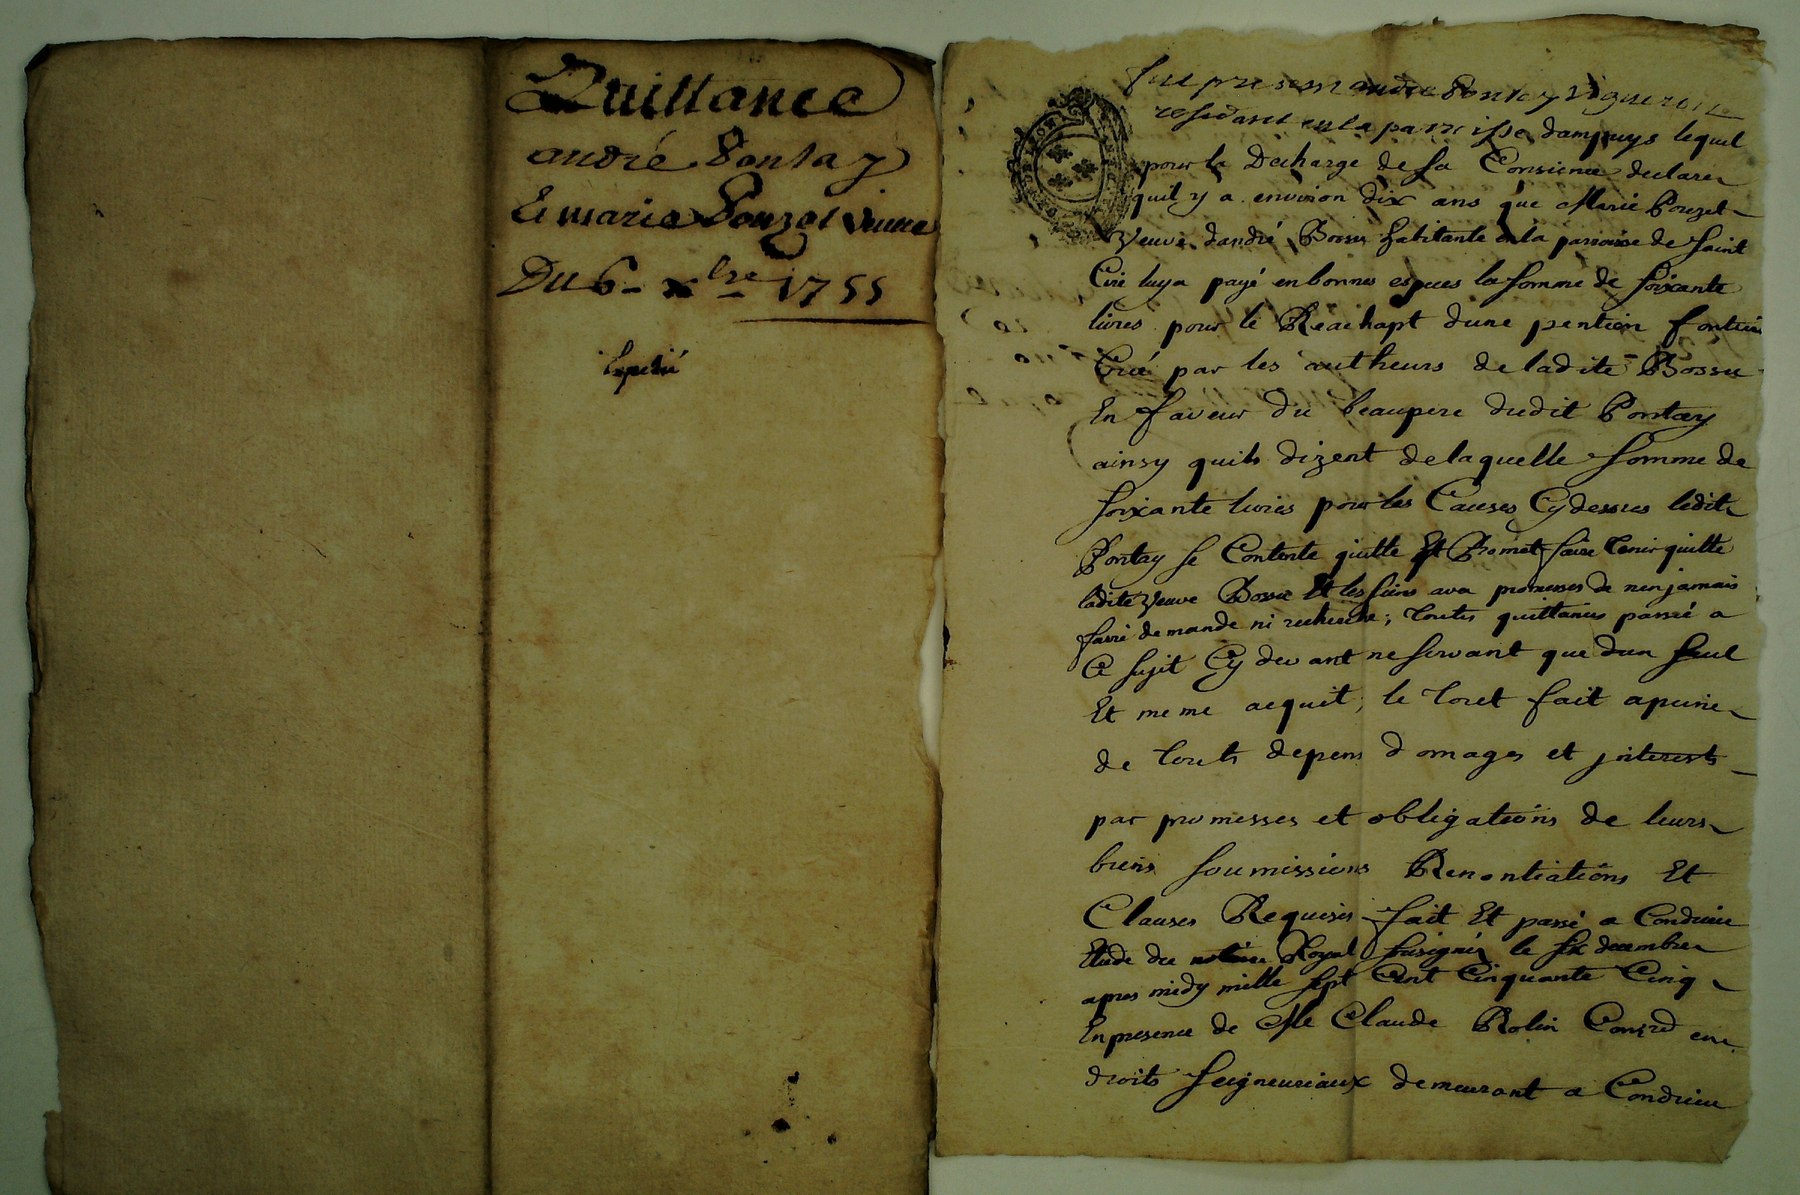 Quittance
andré Pontay
Et marie Pouzet veuve
Du 6 xbre 1755
Expedié
fut present andré Pontay vigneron
residant en la parroisse dampuys lequel
pour la decharge de sa Consience declare
quil y a environ dix ans que Marie Pouzet
veuve dandré Bossu habitante en la parroisse de saint
Cire luy a payé en bonnes especes la somme de soixante
livres pour le Reachapt dune pention fonciere
Créé par les autheurs de ladite Bossu
En faveur du beaupere dudit Pontay
ainsy quils dizent de laquelle somme de
soixante livres pour les Causes Cydessus ledit
Pontay se Contente quitte Et Promet faire tenir quitte
ladite veuve Bossu Et les siens avec promesses de nen jamais
faire demande ni recherche, toutes quittances passé a
Ce sujet Cy devant ne servant que dun seul
Et meme acquit, le tout fait a peine
de touts depens domages et interests
par promesses et obligations de leurs
biens soumissions Renontiations Et
Clauses Requises fait Et passé a Condrieu
Etude du notaire Royal sousigné le six decembre
apres midy mille sept Cent Cinquante Cinq
En presence de Me Claude Rolin en
droits seigneuriaux demeurant a Condrieu